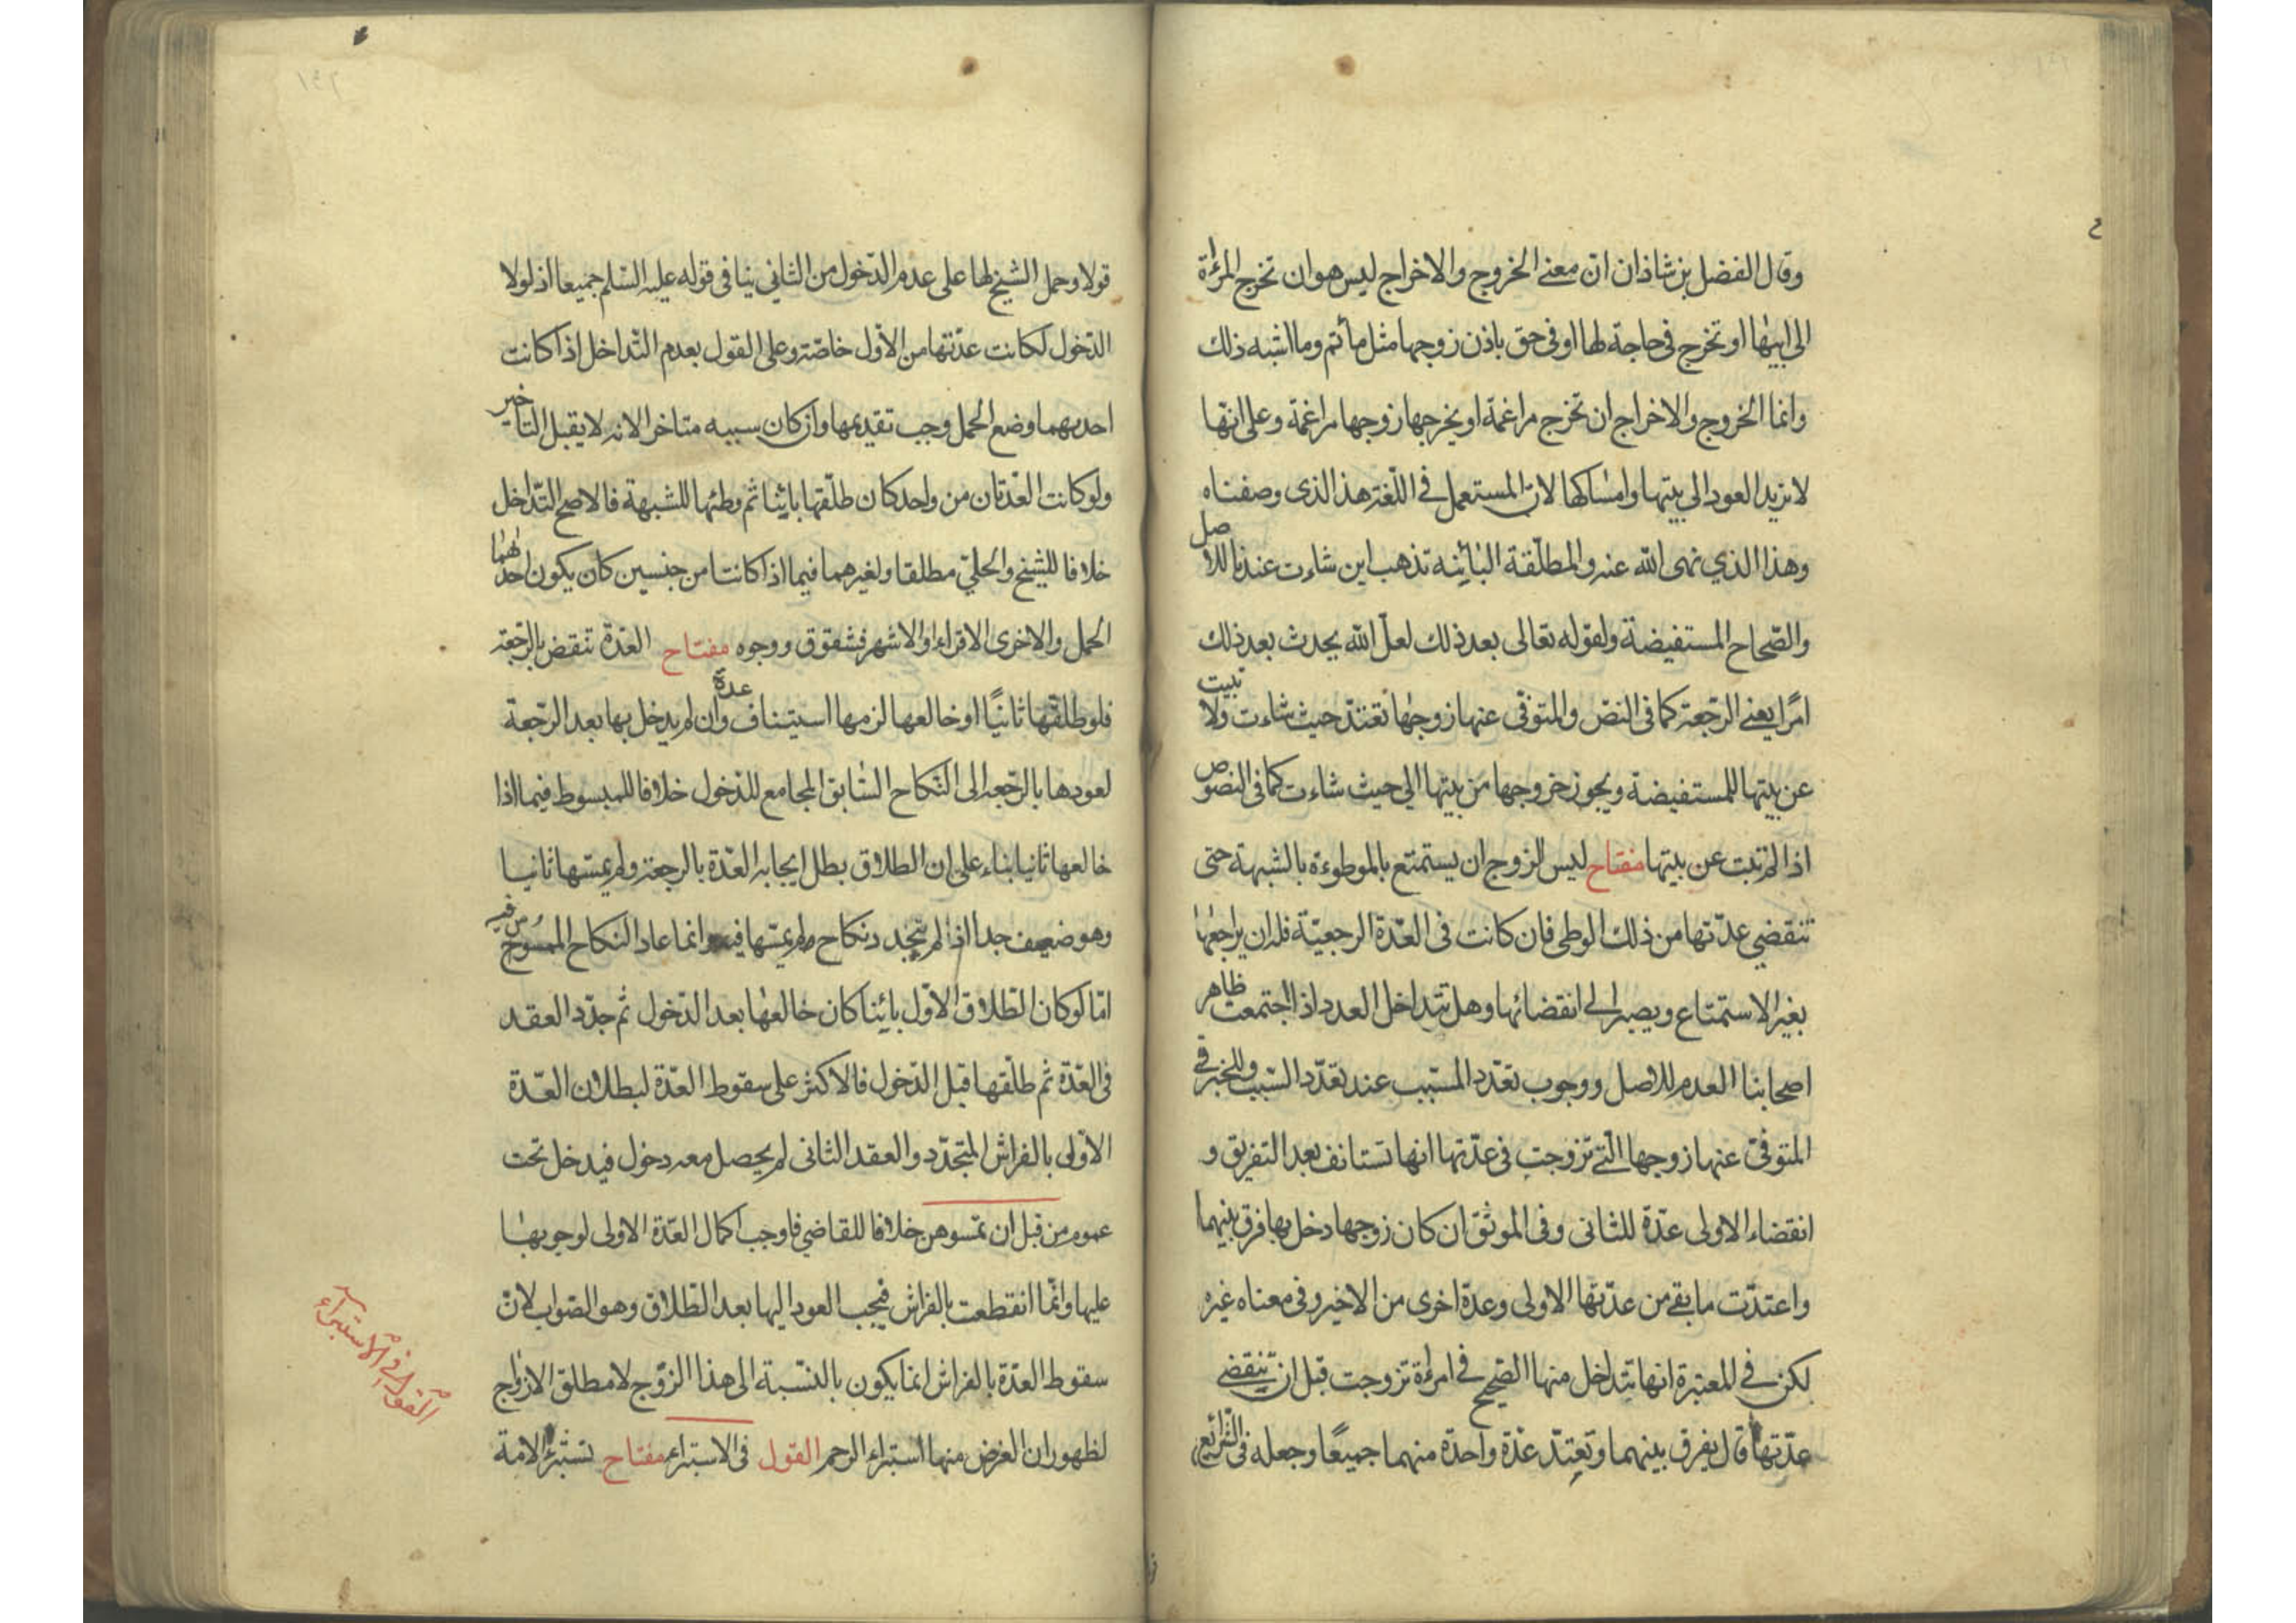 وقال الفضل بن شاذان ان معنى الخروج والاخراج ليس هو ان تخرج المرءاة
الى ابيها او تخرج في حاجة لها او في حق باذن زوجها مثل مأتم وما اشبه ذلك
وانما الخروج والاخراج ان تخرج مراغمة او يخرجها زوجها مراغمة وعلى انها
لا نريد العود الى بيتها وامساكها لان المستعمل في اللغة هذا الذى وصفناه
وهذا الذي نهى الله عنه والمطلّقة البائنه تذهب اين شاءت عندنا للاصل
والصّحاح المستفيضة ولقوله تعالى بعد ذلك لعلّ الله يحدث بعد ذلك
امرًا يعنى الرّجعة كما فى النصّ والمتوفّى عنها زوجها تعتدّ حيث شاءت ولا تبيت
عن بيتها للمستفيضة ويجوز خروجها من بيتها الي حيث شاءت كما فى النصوص
اذا لم تبت عن بيتها مفتاح ليس للزوج ان يستمتع بالموطوءة بالشبهة حتى
تنقضي عدّتها من ذلك الوطى فان كانت فى العدّة الرجعيّة فله ان يراجعها
بغير الاستمتاع ويصبر الى انقضائها وهل تتداخل العدد اذا اجتمعت ظاهر
اصحابنا العدم للاصل ووجوب تعدّد المسّبب عند تعدّد السّبب وللخبر في
المتوفّى عنها زوجها الّتى تزوجت فى عدّتها انها تستانف بعد التفريق و
انقضاء الاولى عدّة للثانى وفى الموثّق ان كان زوجها دخل بها فرق بينهما
واعتدّت ما بقى من عدّتها الاولى وعدة اخرى من الاخير وفى معناه غيره
لكن في المعتبرة انها تتداخل منها الصّحيح في امرءة تزوجت قبل ان تنقضى
عدّتها قال يفرق بينهما وتعتدّ عدّة واحدة منهما جميعًا وجعله فى الشرائع
قولا وحمل الشيخ لها على عدم الدّخول من الثاني ينافى قوله عليه السّلم جميعا اذ لولا
الدّخول لكانت عدّتها من الاوّل خاصّة وعلى القول بعدم التّداخل اذا كانت
احديهما وضع الحمل وجب تقديمها وان كان سببه متاخرا لانه لا يقبل التأخير
ولو كانت العدّتان من واحد كان طلّقها بائنا ثم وطئها للشبهة فالاصح التّداخل
خلافا للشيخ والحلىّ مطلقا ولغيرهما فيما اذا كانتا من جنسين كان يكون احداهما
الحمل والاخرى الاقراء او الاشهر فشقوق ووجوه مفتاح العدّة تنقض بالرّجعة
فلو طلقها ثانيًا او خالعها لزمها استيناف عدة وان لم يدخل بها بعد الرّجعة
لعودها بالرّجعه الى النّكاح السّابق المجامع للدّخول خلافا للمبسوط فيما اذا
خالعها ثانيا بناء على ان الطلاق بطل ايجابه العدّة بالرجعة ولم يمسّها ثانيا
وهو ضعيف جدا اذ لم يتجدد نكاح لم يمسّها فيه وانما عاد النكاح الممسوس فيه
امّا لو كان الطّلاق الاوّل بائنا كان خالعها بعد الدّخول ثم جدّد العقد
فى العدّة ثم طلّقها قبل الدّخول فالاكثر على سقوط العدّة لبطلان العدّة
الاولى بالفراش المتجدّد والعقد الثانى لم يحصل معه دخول فيدخل تحت
عموم من قبل ان تمسّوهن خلافا للقاضي فاوجب اكمال العدّة الاولى لوجوبها
عليها وانّما انقطعت بالفراش فيجب العود اليها بعد الطّلاق وهو الصّواب لانّ
سقوط العدّة بالفراش انما يكون بالنّسبة الى هذا الزّوج لا مطلق الازواج
لظهور ان الغرض منها استبراء الرحم القول فى الاستبراء مفتاح تستبرء الامة
القول في الاستبراء